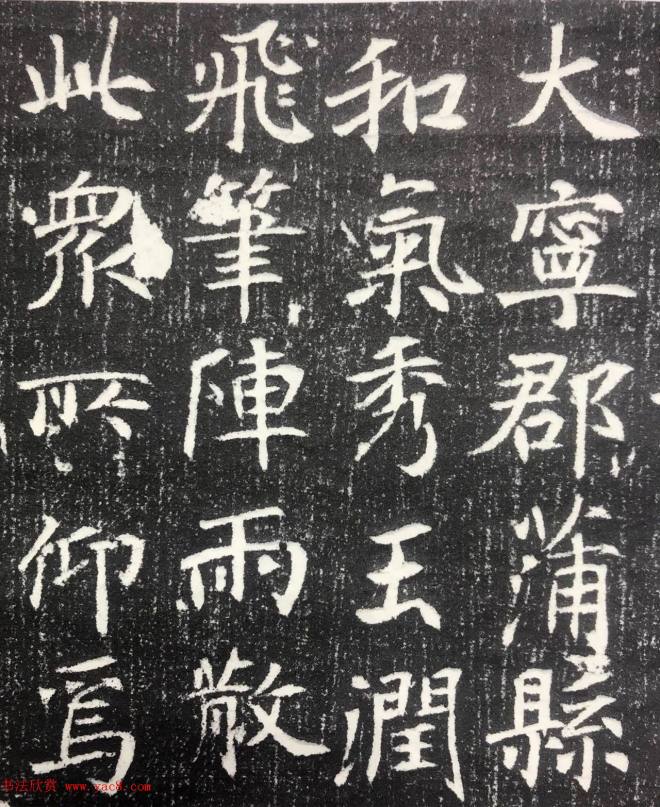 大寧郡蒲縣
和氣秀玉潤
飛筆陣雨散
此衆所仰焉
书法欣赏 www.yac8.com